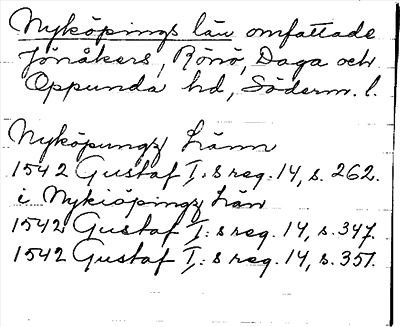 Nyköpings län omfattade
Jönåkers, Rönö, Daga och
Oppunda hd, Söderm. l.
Nyköpungz Länn
1542 Gustaf I:s reg. 14, s. 262.
i Nykiöpingz Län
1542 Gustaf I:s reg. 14, s. 347.
1542 Gustaf I:s reg. 14, s. 351.